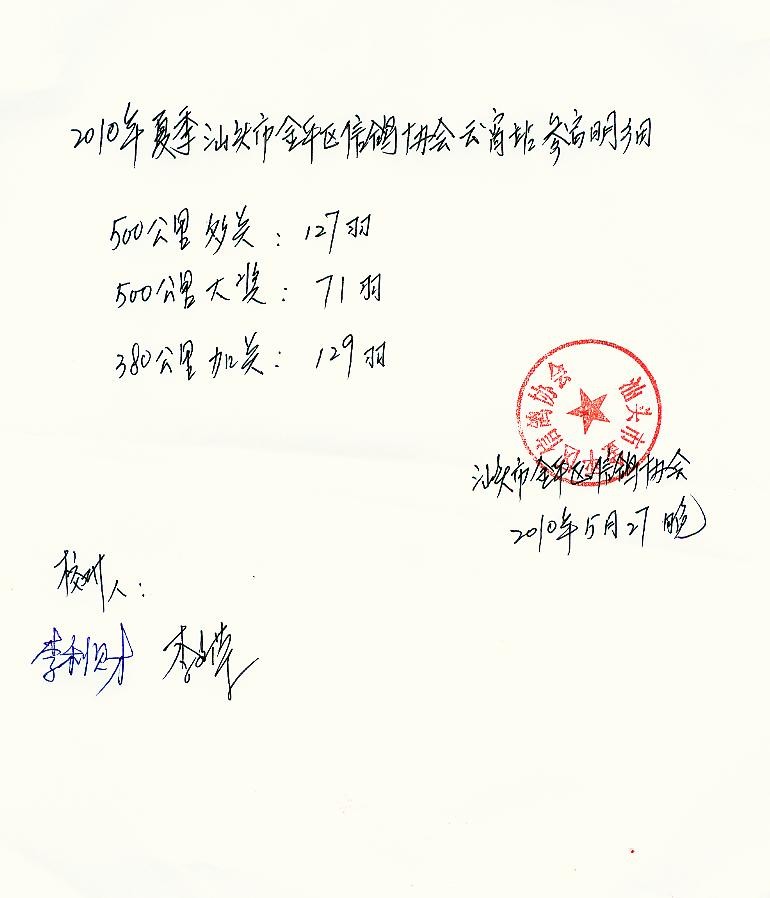 2010年夏季汕头市金平区信鸽协会云霄站参明细
500公里多关：127羽
500公里大奖：71羽
380公里加关：129羽
汕头市金平区信鸽协会
汕头市金平区信鸽协会
2010年5月27晚
校对人：
李利财 李